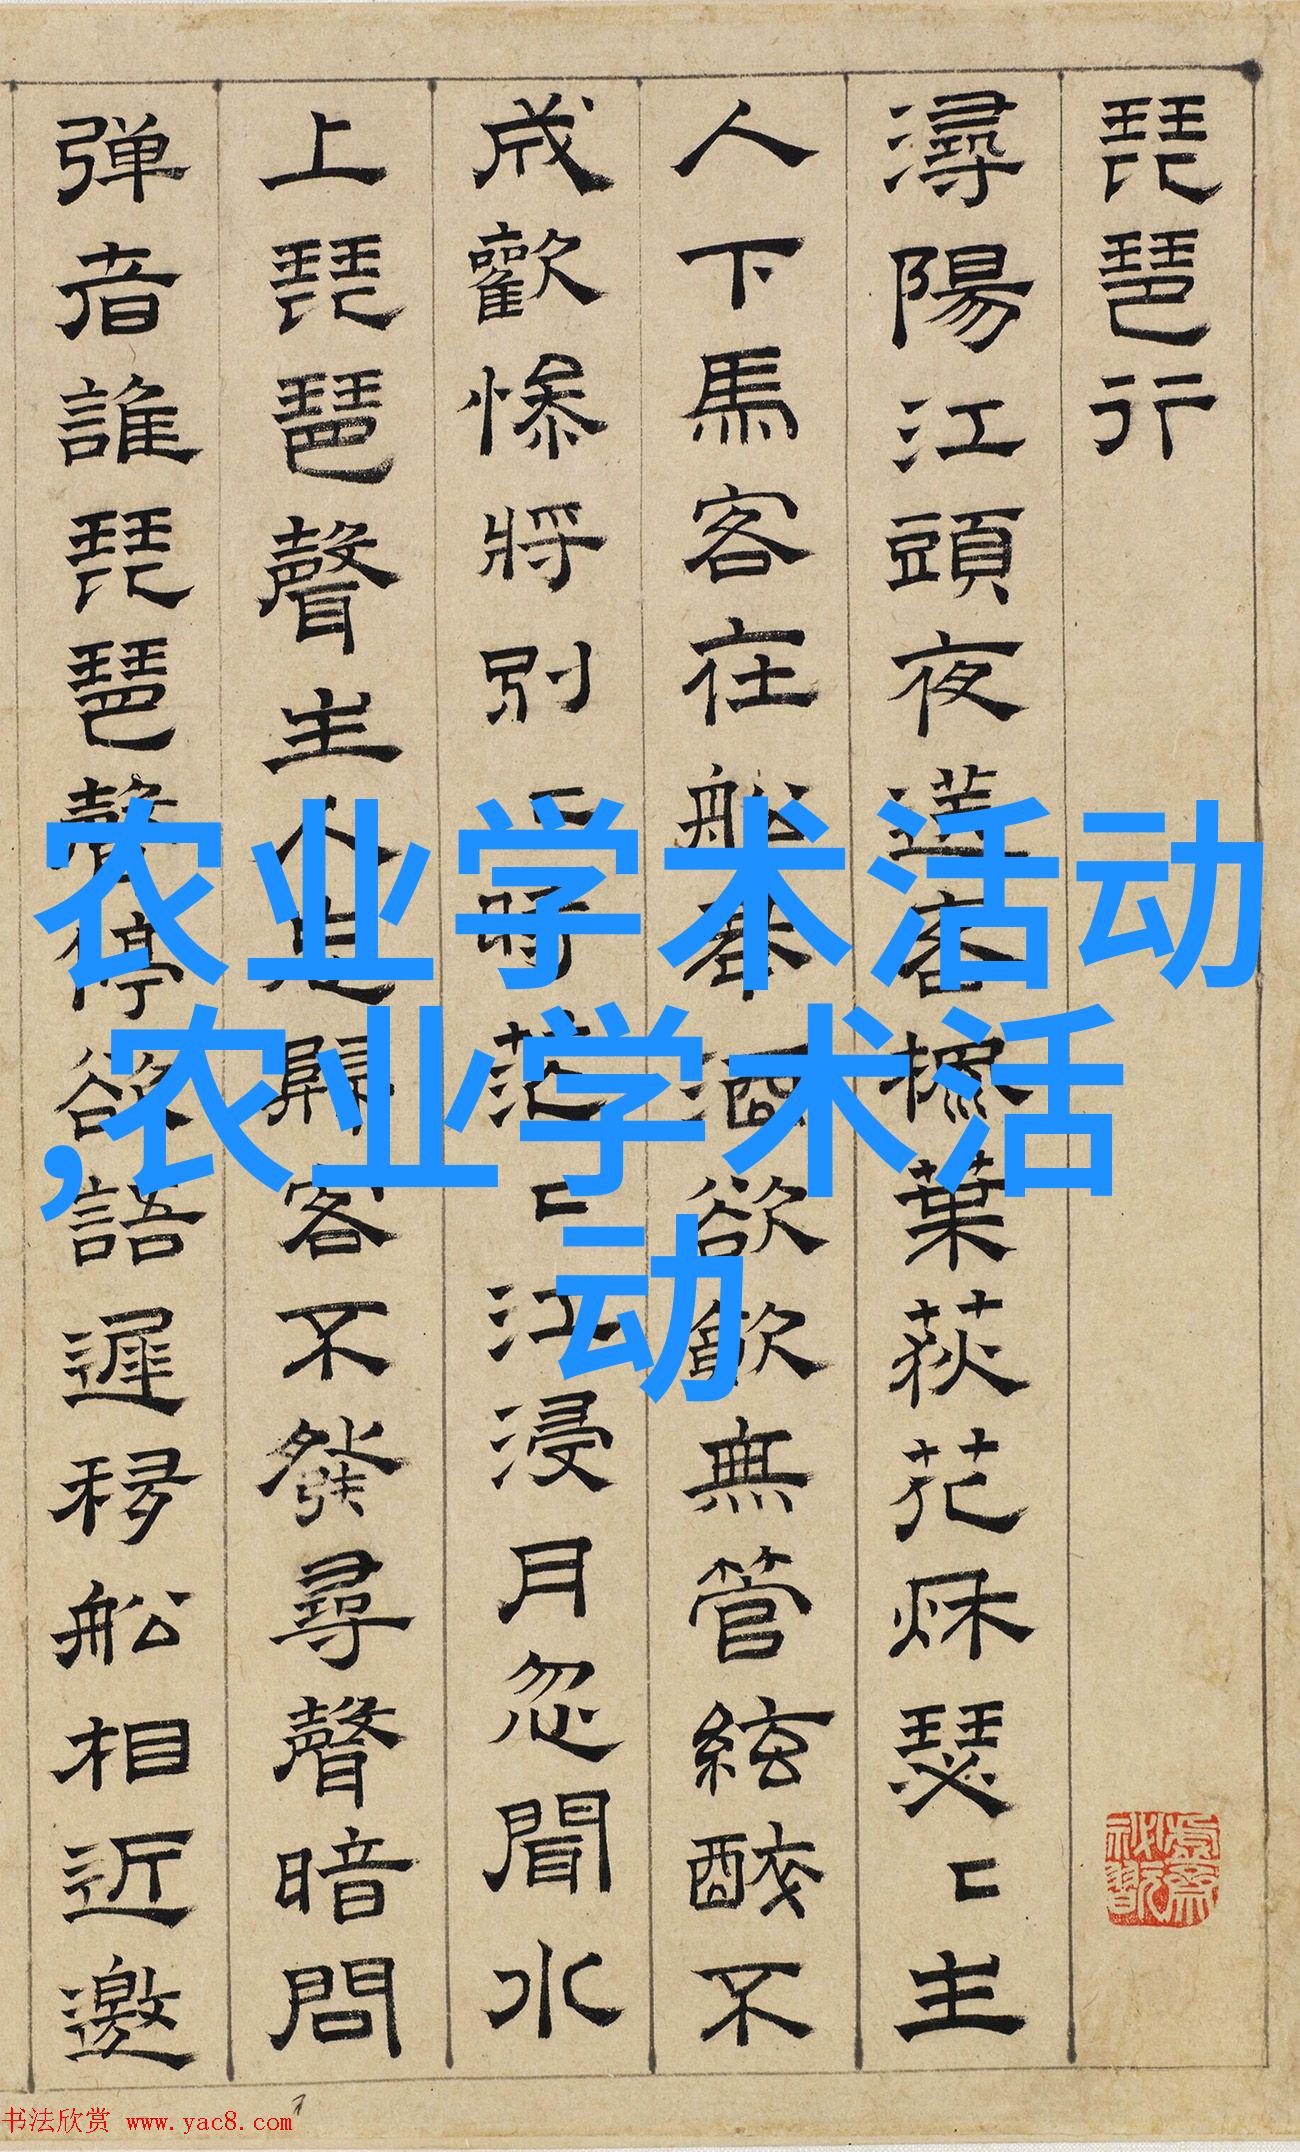 琵琶行
潯陽江頭夜送客楓葉荻花秌瑟〻主
人下馬客在船舉酒欲飲無管絃醉不
成歡慘將別〻時茫〻江浸月忽聞水
上琵琶聲主人忘歸客不發尋聲暗問
弹者誰琵琶聲停欲語遲移船相近邀
农业学术活动
,农业学术活
动
书法欣赏 www.yac8.com